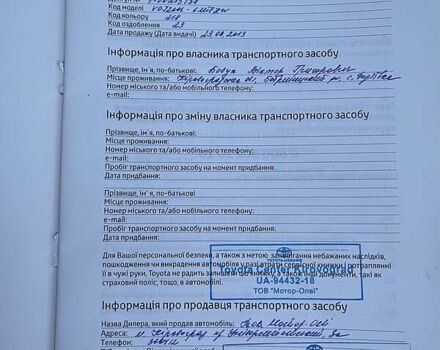 Код моделі
Код кольору 218
Код оздоблення 23
Дата продажу (Дата видачі) 23.08.2013
Інформація про власника транспортного засобу
Прізвище, ім'я, по-батькові: Бовун Віктор Григорович
Місце проживання: Кіровоградська обл, Бобринецький р, с.
Номер міського та/або мобільного телефону:
e-mail:
Інформація про зміну власника транспортного засобу
Прізвище, ім'я, по-батькові:
Місце проживання:
Номер міського та/або мобільного телефону:
e-mail:
Пробіг транспортного засобу на момент придбання:
Дата придбання:
Прізвище, ім'я, по-батькові
Місце проживання:
Номер міського та/або мобільного телефону:
e-mail:
Пробіг транспортного засобу на момент придбання:
Дата придбання:
Для Вашої персональної безпеки, а також з метою запобігання небажаних наслідків,
пошкодження чи викрадення автомобіля у разі втрати сервісної книжки і потраплянні
її в чужі руки, Toyota не радить залишати цю книжку, а також інші документи, такі як
страховий поліс, тощо, в автомобілі.
TOYOTA
Toyota Center Kirovograd
UA-94432-18
ТОВ "Мотор-Олві"
Інформація про продавця транспортного засобу
Назва Дилера, який продав автомобіль: ТОВ Мотор-Олві
Адреса: м. Кіровоград
Телефон: